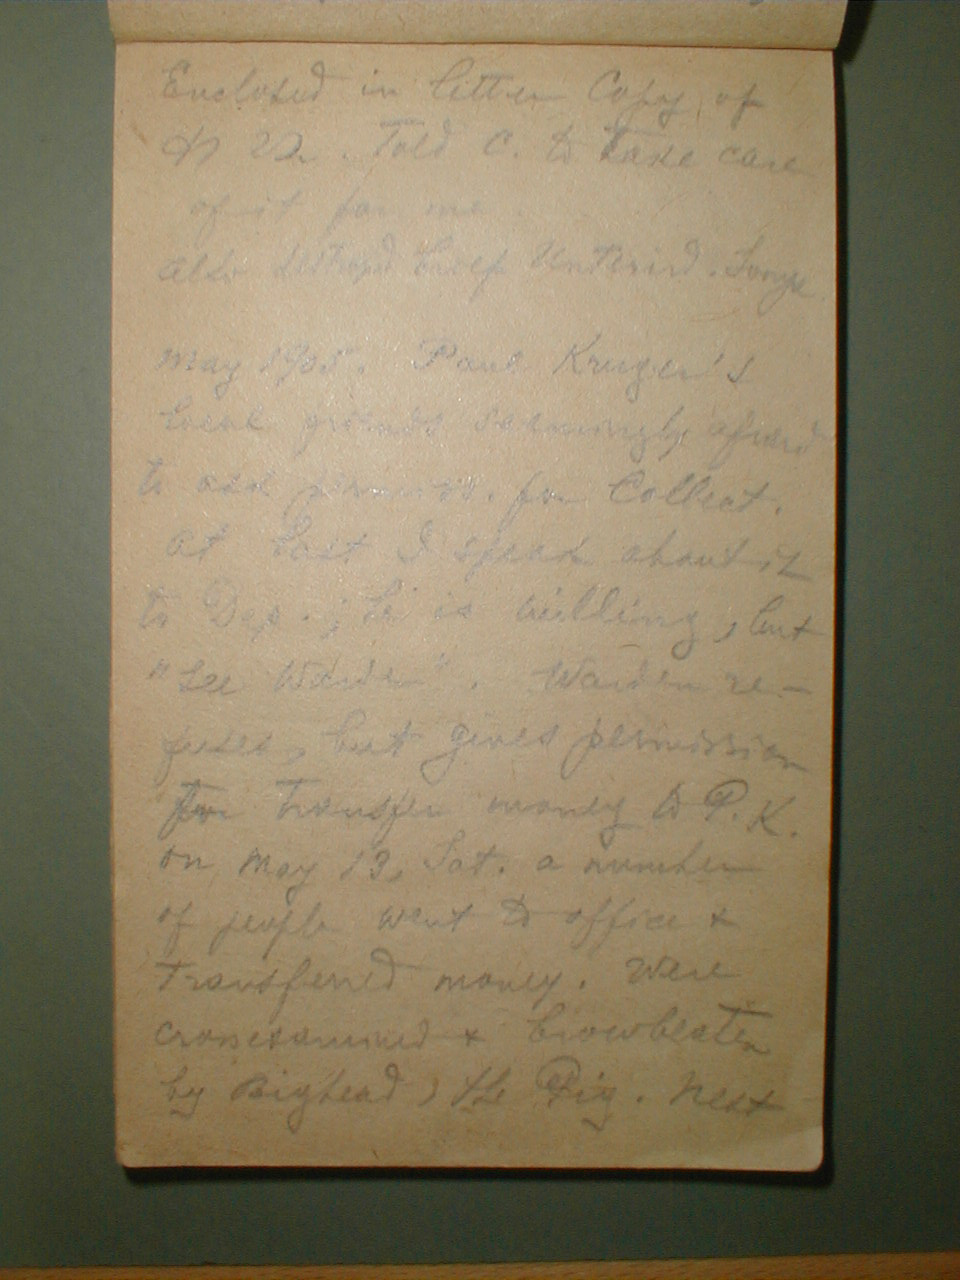 Enclosed in letter Copy of
Told C. to take care
of it for me.
also
May 1905. Paul Kruger's
local friends seemingly afraid
to ask permiss. for Collect.
At last I speak about it
to Dep.; he is willing, but
"see Warden". Warden re-
fuses, but gives permission
for transfer money to P. K.
on May 13, Sat. a number
of people went to office &
transferred money. Were
crossexamined & browbeaten
by Bighead, the Pig. Next